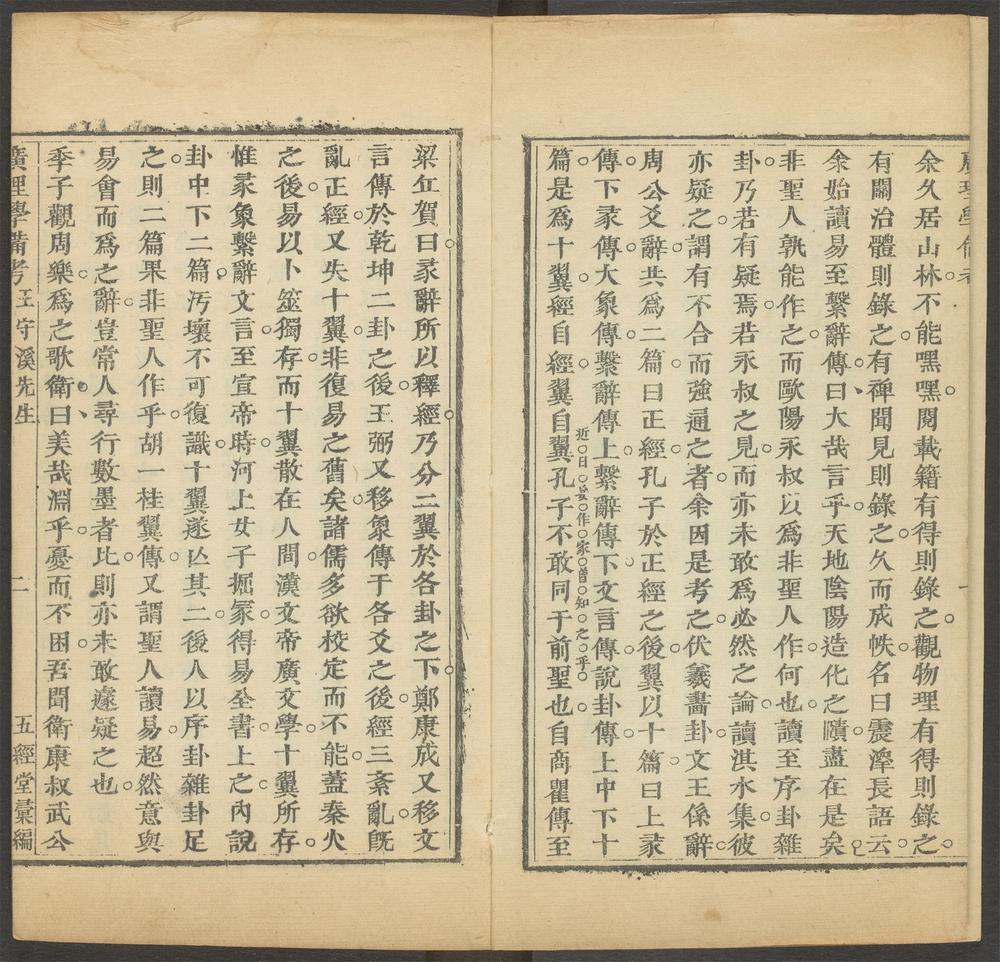 廣理學備考
一
余久居山林不能嘿嘿閱載籍有得則錄之觀物理有得則錄之
有關治體則錄之有裨聞見則錄之久而成帙名曰震澤長語云
余始讀易至繫辭傳曰大哉言乎天地陰陽造化之賾盡在是矣
非聖人孰能作之而歐陽永叔以為非聖人作何也讀至序卦雜
卦乃若有疑焉若永叔之見而亦未敢爲必然之論讀淇水集彼
亦疑之謂有不合而強通之者余因是考之伏羲畵卦文王係辭
周公爻辭共爲二篇曰正經孔子於正經之後翼以十篇曰上彖
傳下彖傳大象傳繫辭傳上繫辭傳下文言傳說卦傳上中下十
近日爰作家曾知之乎
篇是爲十翼經自經翼自翼孔子不敢同于前聖也自商瞿傳至
梁丘賀曰彖辭所以釋經乃分二翼於各卦之下鄭康成又移文
言傳於乾坤二卦之後王弼又移象傳于各爻之後經三紊亂旣
亂正經又失十翼非復易之舊矣諸儒多欲校定而不能蓋秦火
之後易以卜筮獨存而十翼散在人間漢文帝廣文學十翼所存
惟彖象繫辭文言至宣帝時河上女子掘冢得易全書上之內說
卦中下二篇汚壞不可復識十翼遂亾其二後人以序卦雜卦足
之則二篇果非聖人作乎胡一桂翼傳又謂聖人讀易超然意與
易會而爲之辭豈常人尋行數墨者比則亦未敢遽疑之也
季子觀周樂爲之歌衛曰美哉淵乎憂而不困吾聞衛康叔武公
廣理學備考 王守溪先生
二
五經堂彙編